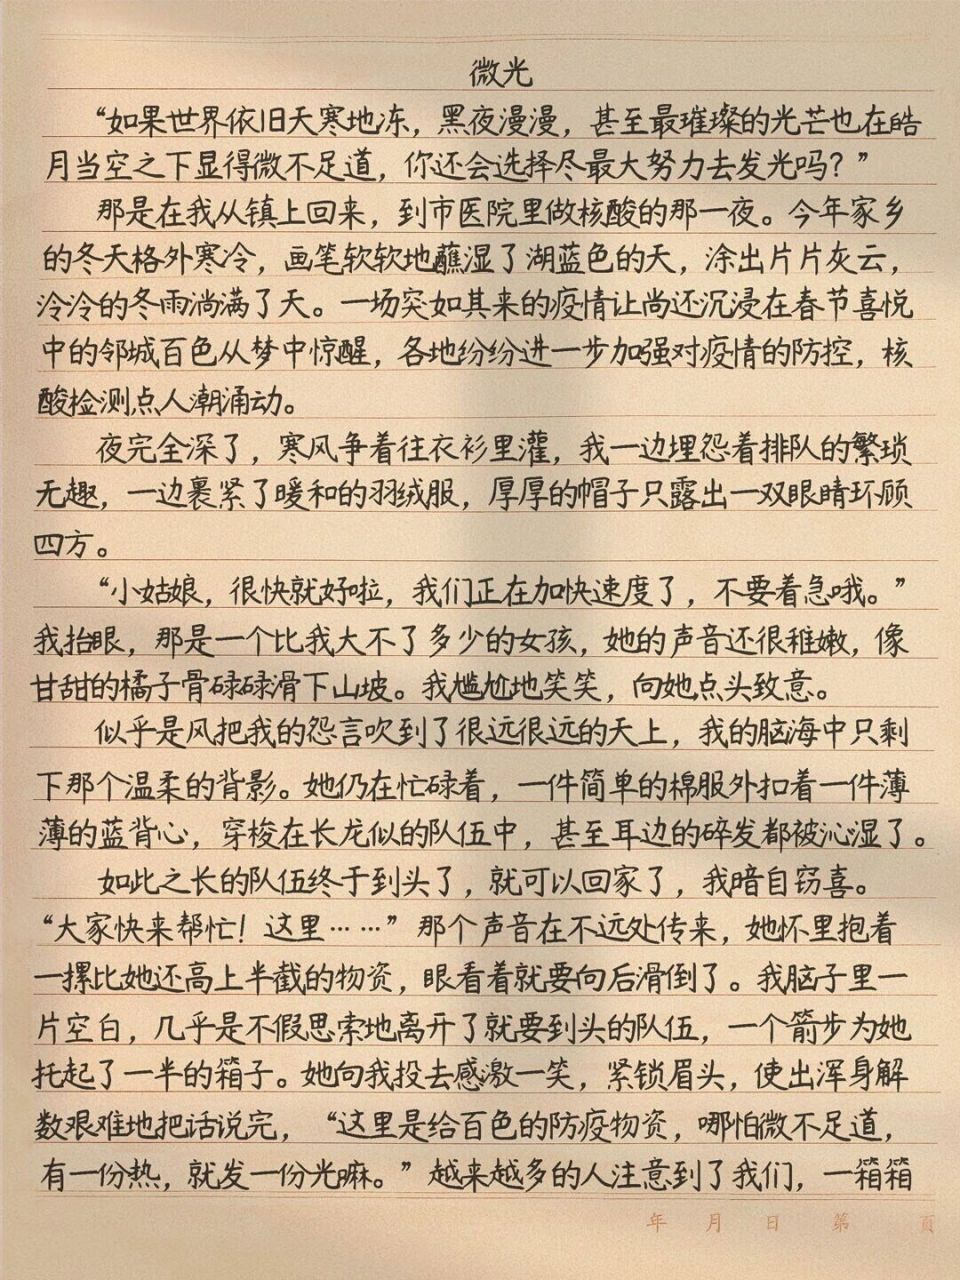 微光
“如果世界依旧天寒地冻，黑夜漫漫，甚至最璀璨的光芒也在皓
月当空之下显得微不足道，你还会选择尽最大努力去发光吗？”
那是在我从镇上回来，到市医院里做核酸的那一夜。今年家乡
的冬天格外寒冷，画笔软软地蘸湿了湖蓝色的天，涂出片片灰云，
泠泠的冬雨淌满了天。一场突如其来的疫情让尚还沉浸在春节喜悦
中的邻城百色从梦中惊醒，各地纷纷进一步加强对疫情的防控，核
酸检测点人潮涌动。
夜完全深了，寒风争着往衣衫里灌，我一边埋怨着排队的繁琐
无趣，一边裹紧了暖和的羽绒服，厚厚的帽子只露出一双眼睛环顾
四方。
“小姑娘，很快就好啦，我们正在加快速度了，不要着急哦。”
我抬眼，那是一个比我大不了多少的女孩，她的声音还很稚嫩，像
甘甜的橘子骨碌碌滑下山坡。我尴尬地笑笑，向她点头致意。
似乎是风把我的怨言吹到了很远很远的天上，我的脑海中只剩
下那个温柔的背影。她仍在忙碌着，一件简单的棉服外扣着一件薄
薄的蓝背心，穿梭在长龙似的队伍中，甚至耳边的碎发都被沁湿了。
如此之长的队伍终于到头了，就可以回家了，我暗自窃喜。
“大家快来帮忙！这里……”那个声音在不远处传来，她怀里抱着
一摞比她还高上半截的物资，眼看着就要向后滑倒了。我脑子里一
片空白，几乎是不假思索地离开了就要到头的队伍，一个箭步为她
托起了一半的箱子。她向我投去感激一笑，紧锁眉头，使出浑身解
数艰难地把话说完，“这里是给百色的防疫物资，哪怕微不足道，
有一份热，就发一份光嘛。”越来越多的人注意到了我们，一箱箱
年 月 日 第 頁